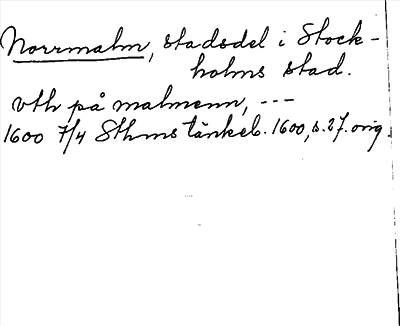 Norrmalm, stadsdel i Stock-
holms stad.
vth på malmenn, ---
1600 7/4 Sthms tänkeb. 1600, s. 27. orig.